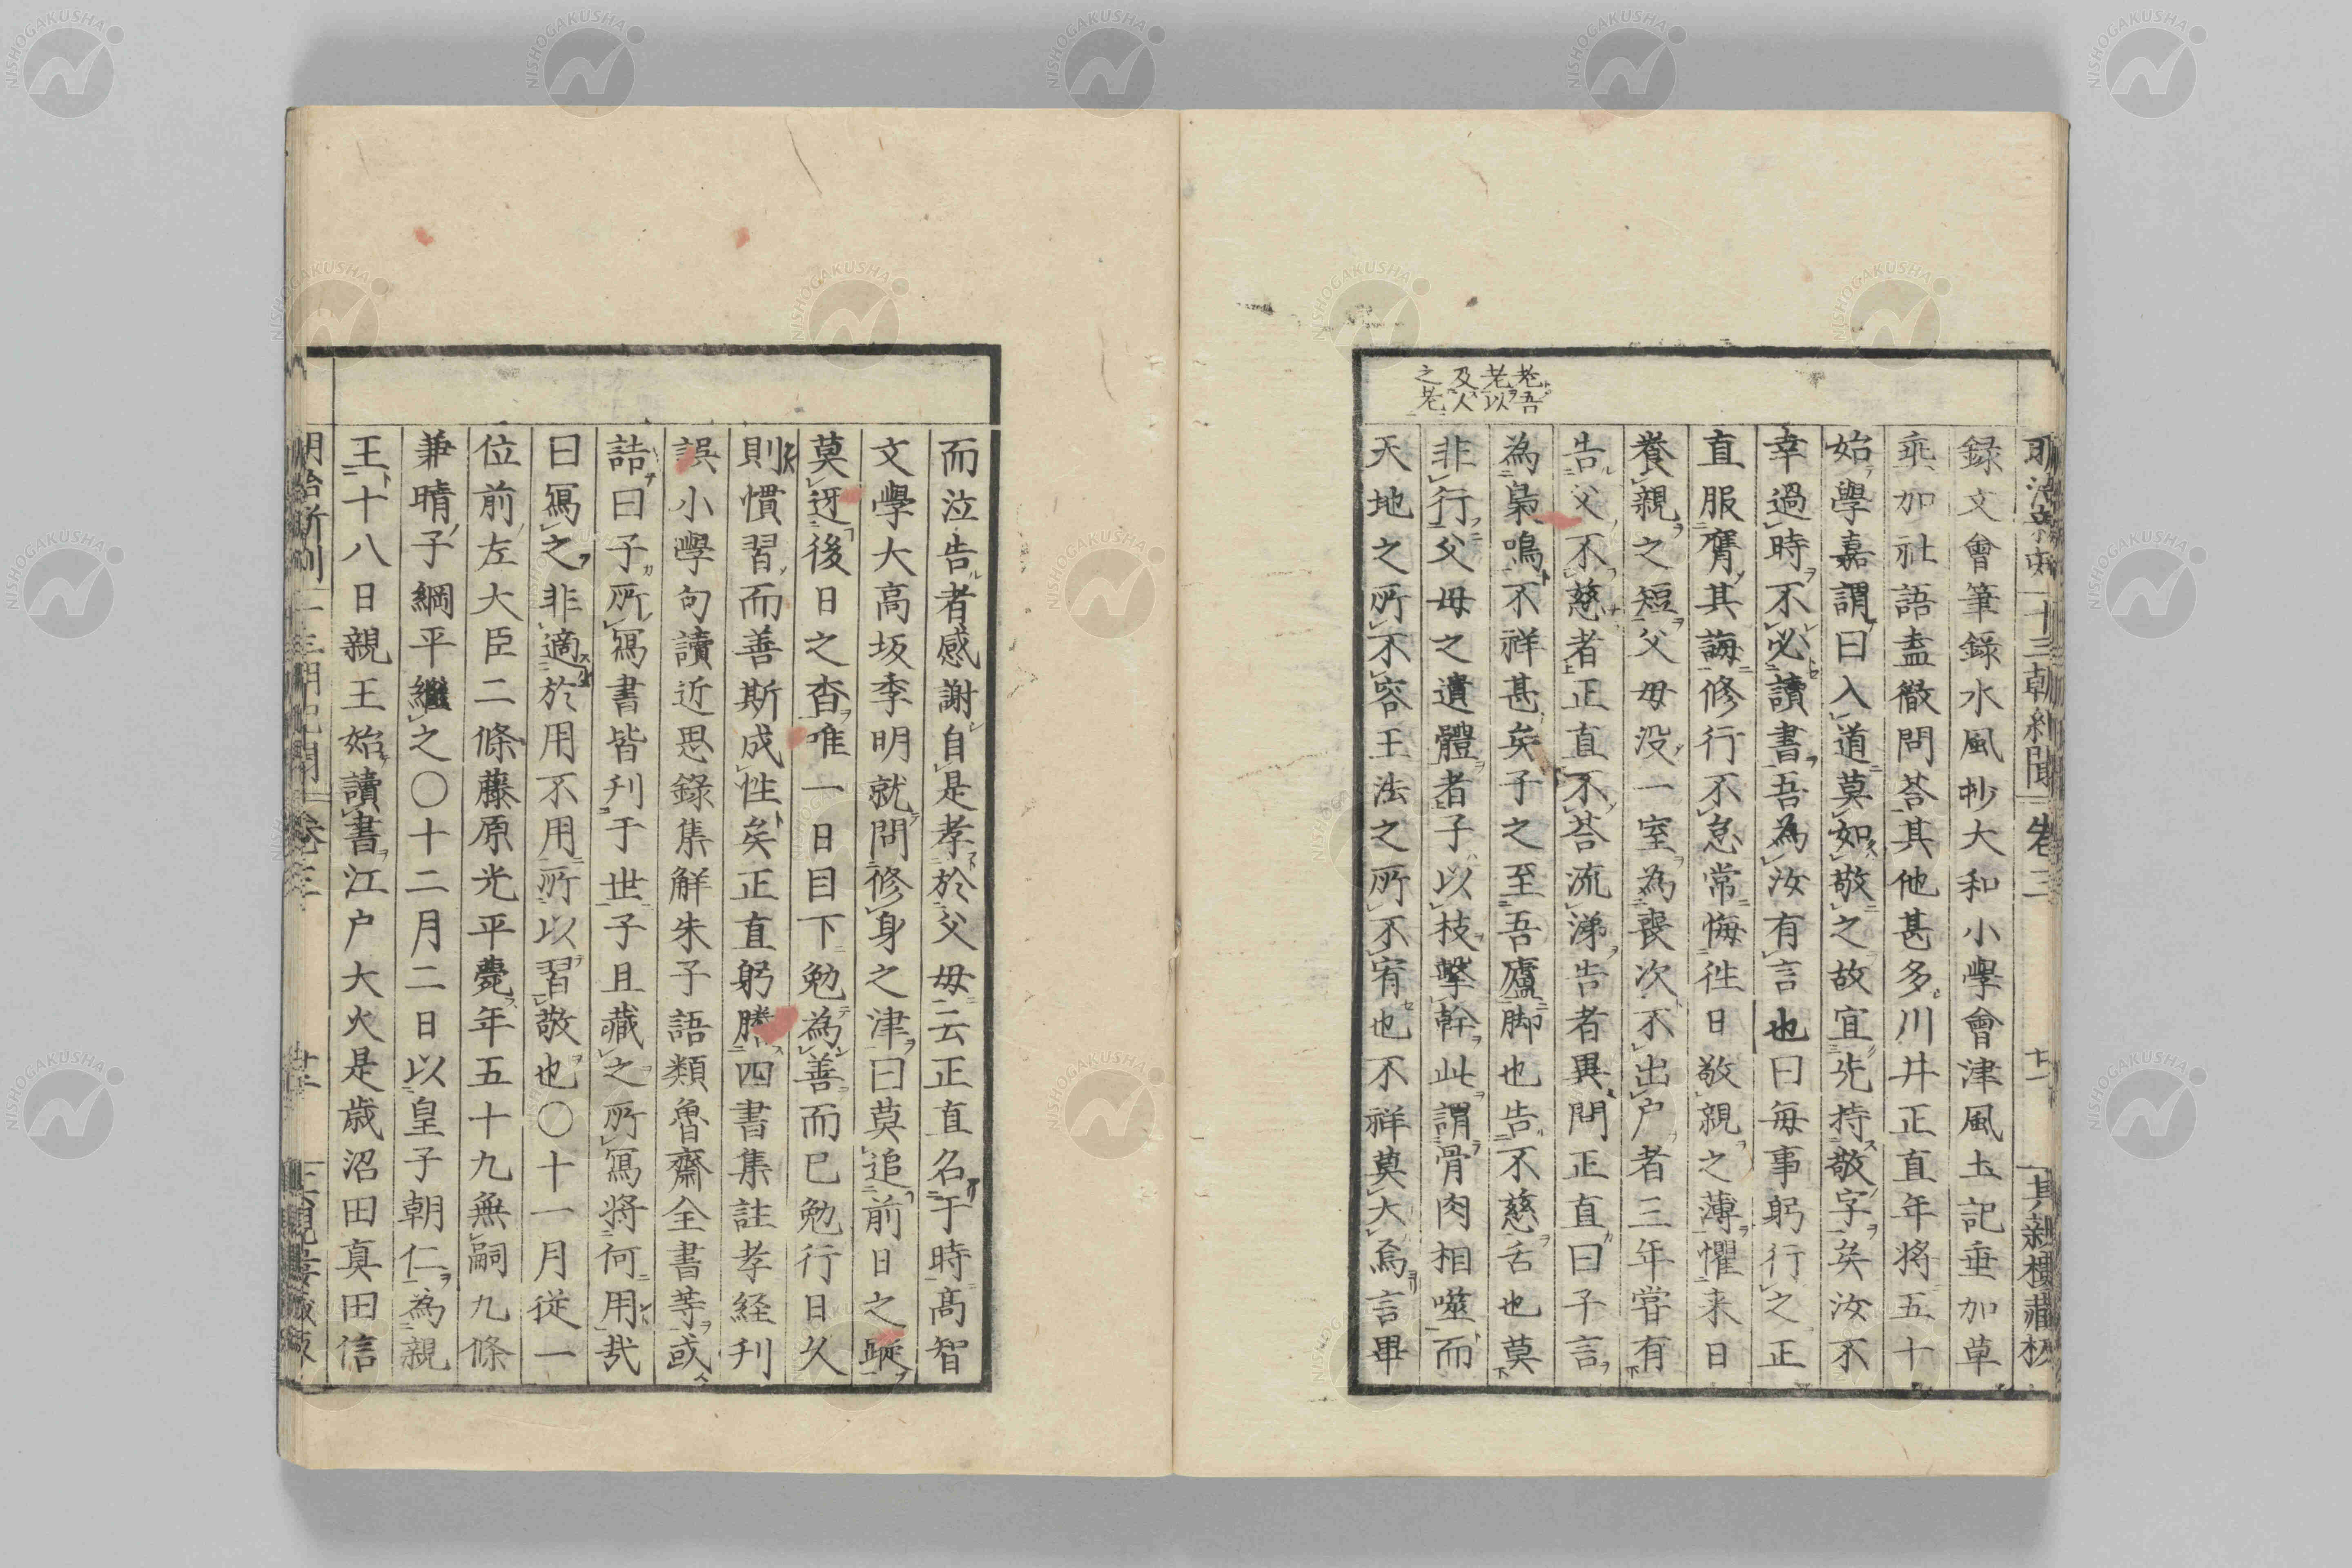 録文會筆錄水風抄大和小學會津風土記垂加草
垂加社語盍徹問荅其他甚多川井正直年将五十
始學嘉謂曰入道莫如敬之故宜先持敬字矣汝不
幸過時不必讀書吾為汝有言也曰毎事躬行之正
直服膺其誨修行不怠常悔徃日敬親之薄懼来日
養親之短父母没一室為喪次不出户者三年甞有
告父不慈者正直不荅流涕告者異問正直曰子言
為梟鳴不祥甚矣子之至吾廬脚也告不慈舌也莫
非行父母之遺體者子以枝擊幹此謂骨肉相噬而
天地之所不容王法之所不宥也不祥莫大焉言畢
老吾
老以
及人
之老
而泣告者感謝自是孝於父母云正直名于時髙智
文學大高坂季明就問修身之津曰莫追前日之蹤
莫迓後日之杳唯一日目下勉為善而已勉行日久
則慣習而善斯成性矣正直躬謄四書集註孝経刋
誤小學句讀近思錄集解朱子語類魯齋全書等或
詰曰子所冩書皆刋于世子且藏之所冩将何用哉
曰冩之非適於用不用所以習敬也〇十一月従一
位前左大臣二條藤原光平薨年五十九無嗣九條
兼晴子綱平繼之〇十二月二日以皇子朝仁為親
王十八日親王始讀書江户大火是歳沼田真田信